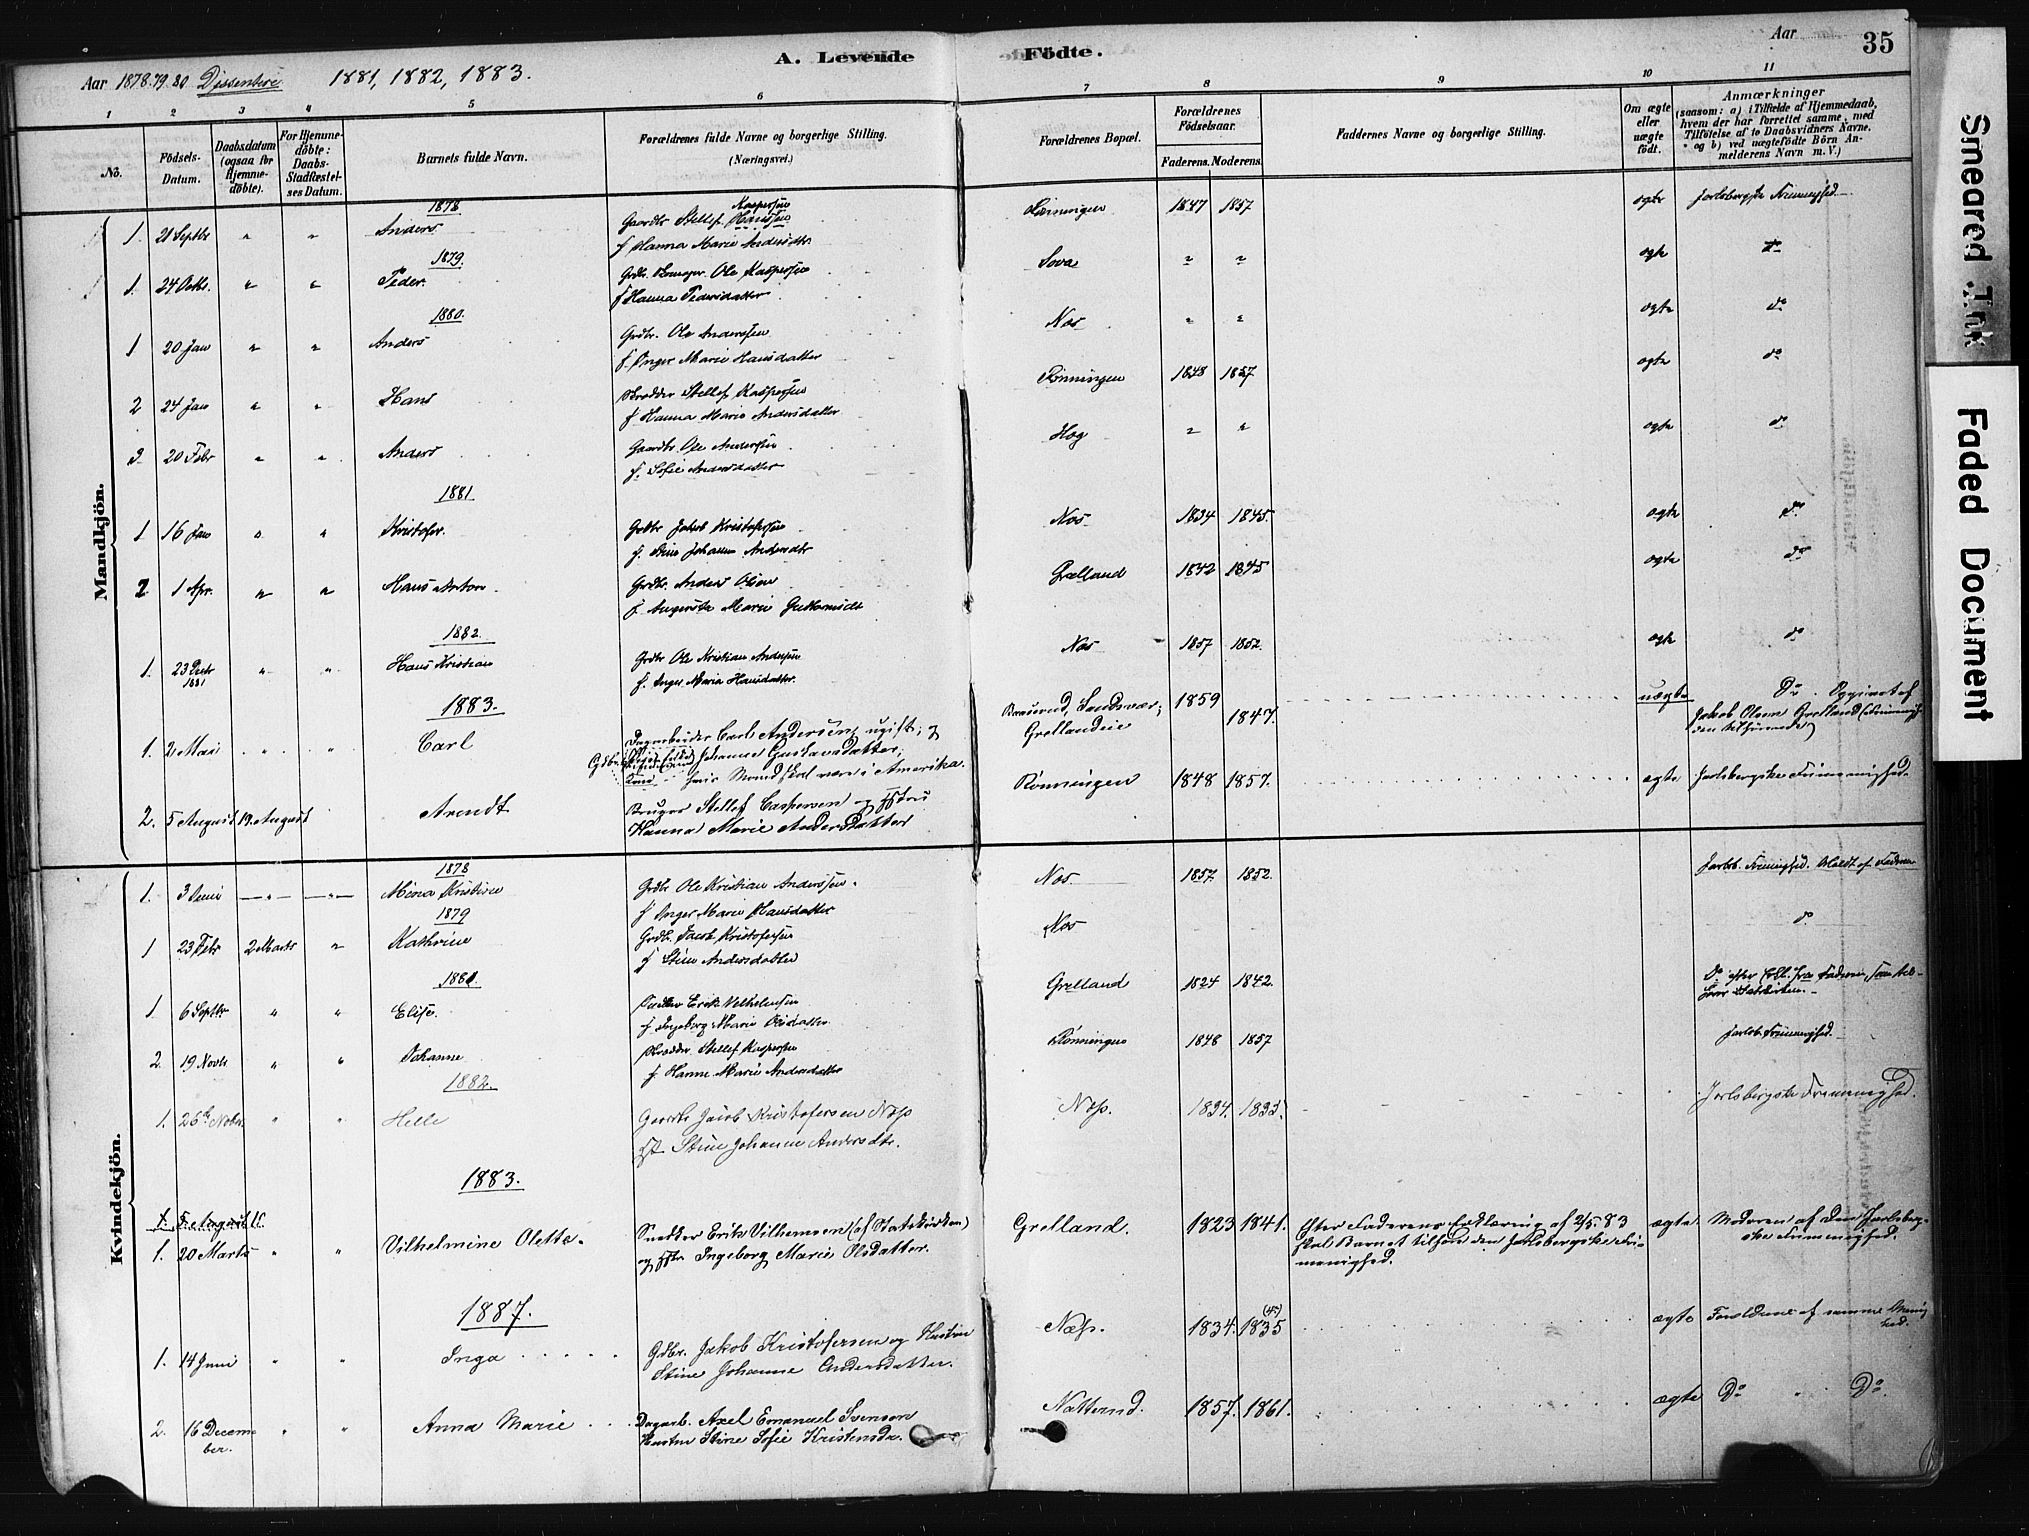 Aar 1878.79.80 Dissentere 1881, 1882, 1883.
A. Levende Födte.
Aar
35
1 2 3 4 5 6 7 8 9 10 11
No.
Födsels-Datum.
Daabsdatum (ogsaa for Hjemme-döbte).
For Hjemme-döbte: Daabs-Stadfæstel-ses Datum.
Barnets fulde Navn.
Forældrenes fulde Navne og borgerlige Stilling. (Næringsvei.)
Forældrenes Bopæl.
Forældrenes Födselsaar. Faderens. Moderens.
Faddernes Navne og borgerlige Stilling.
Om ægte eller uægte födt.
Anmærkninger (saasom: a) i Tilfælde af Hjemmedaab, hvem der har forrettet samme, med Tilföielse af to Daabsvidners Navne. og b) ved uægtefödte Börn An-melderens Navn m. V.)
Mandkjön.
1878
1. 21 Septbr " " Anders Gaardbr Stellef Hansen Kaspersen Rønningen 1847 1857 ægte Jarlsbergske Frimenighed
f Hanna Marie Andersdtr
1879.
1. 24 Octbr. " " Peder. Ole Kaspersen Sova " " ægte do
f Hanna Pedersdatter
1880.
1 20 Jan " " Anders Grdbr. Ole Anderssen Nos " " ægte do
f. Inger Marie Hansdatter
2 24 Jan " " Hans Stellef Kaspersen Rønningen 1848 1857 ægte do
f Hanna Marie Andersdatter
3 20 Febr " " Anders Gaardbr. Ole Anderssen Hog " " ægte do
f. Sofie Andersdatter
1881
1 16 Jan " " Kristofer. Grdbr Jakob Kristofersen Nos 1834 1845. ægte do
f. Stine Johanne Andersdtr
2. 1 Apr. " " Hans Anton. Grdbr. Anders Olsen Grelland 1842 1845 ægte do
f. Augusta Marie
1882.
1. 23 Decbr 1881 " " Hans Kristian Grdbr Ole Kristian Andersen Nos 1857 1852. ægte do
f. Inger Maria Hansdatter.
1883.
1. 2 Mai " " Carl Dagarbeider Carl Andersen, ugift; og Sandsvær; 1859 uægte Do. Opgivet af
Johanne Gustavsdatter; Grellandeie 1847. Jakob Olsen Grelland
hvis Mand skal være i Amerika.
2. 5 August 19 August Arendt Bruger Stellef Caspersen og Hstru Rønningen 1848 1857. ægte Jarlsbergske Frimenighed.
Hanna Marie Andersdatter
Kvindekjön.
1878
1. 3 Juni " " Mina Kristine Grdbr Ole Kristian Anderssen. Nos 1857 1852. Jarlsb. Frimenighed. Meldt af Faderen
f Inger Marie Hansdatter
1879
1 23 Febr 2 Marts " Kathrine Grdbr. Jacob Kristofersen Nos do
f Stine Andersdatter
1881.
1. 6 Septbr " " Elise. Erik Velhelmsen Grelland 1824 1842. Do efter fra Faderen, som
f Ingeborg Marie Olsdatter
2. 19 Novbr " " Johanne Stellef Kaspersen Rønningen 1848 1857 Jarlsb. Frimenighed.
f Hanne Marie Andersdatter
1882.
1. 26de Novbr. " " Helle Gaardbr Jacob Kristofersen Næs Næs. 1834. 1835. Jarlsbergske Frimenighed.
Stine Johanne Andersdtr.
1883.
1. 5. August
1. 20 Marts " " Vilhelmine Olette. Snedker Erik Vilhemsen (af Statskirken) Grelland. 1823 1841. Efter Faderens Erklæring af 2/5 83 ægte Moderen af den Jarlsberg-
og Hstr Ingeborg Marie Olsdatter. skal Barnet tilhøre den Jarlsbergske Fri-menighed. ske Frimenighed.
1887.
1. 14 Juni " " Inga Gdbr. Jakob Kristofersen og Hustru Næs. 1834. 1835 (4?) ægte Forældrene af samme Menighed.
Stine Johanne Andersdatter.
2. 16 December. " " Anna Marie Dagarb. Axel Emanuel Svenson Natterud. 1857. 1861. ægte Do " Do.
Hustru Stine Sofie Kristensdr.
Smeared Ink
Faded Document